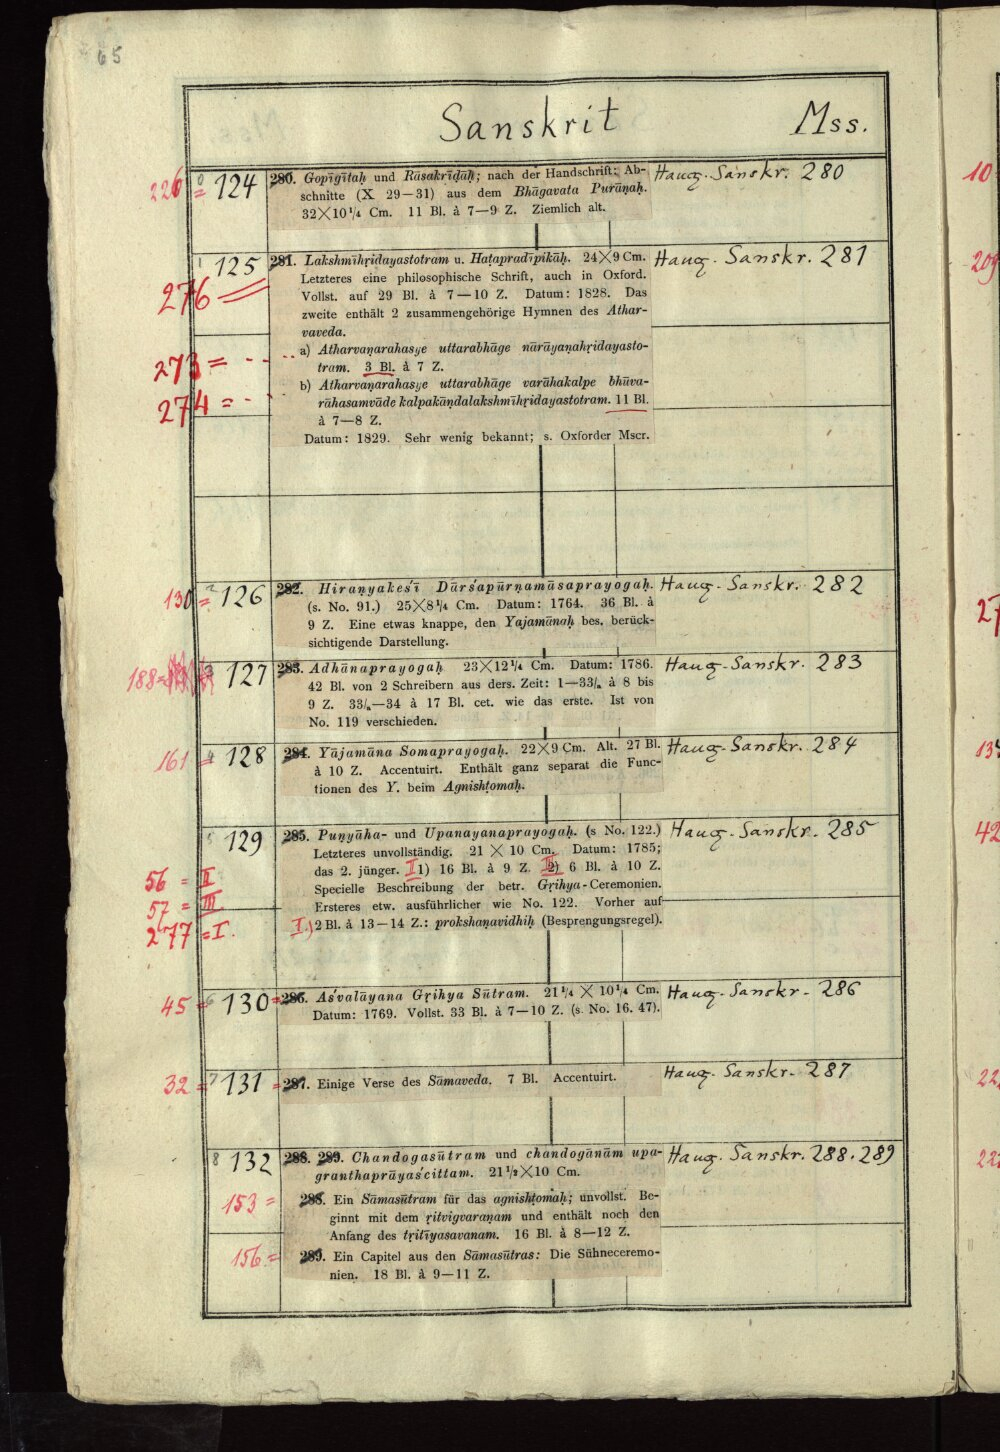 65
Sanskrit Mss.
226 = 0 124 280. Gopīgītaḥ und Rāsakrīḍāḥ; nach der Handschrift: Ab- Haug. Sanskr. 280
schnitte (X 29—31) aus dem Bhāgavata Purāṇaḥ.
32×10¼ Cm. 11 Bl. à 7—9 Z. Ziemlich alt.
1 125 281. Lakshmīhṛidayastotram u. Haṭapradīpikāḥ. 24×9 Cm. Haug. Sanskr. 281
276 = Letzteres eine philosophische Schrift, auch in Oxford.
Vollst. auf 29 Bl. à 7—10 Z. Datum: 1828. Das
zweite enthält 2 zusammengehörige Hymnen des Athar-
vaveda.
273 = a) Atharvaṇarahasye uttarabhāge nārāyaṇahṛidayasto-
tram. 3 Bl. à 7 Z.
274 = b) Atharvaṇarahasye uttarabhāge varāhakalpe bhūva-
rāhasamvāde kalpakāṇdalakshmīhṛidayastotram. 11 Bl.
à 7—8 Z.
Datum: 1829. Sehr wenig bekannt; s. Oxforder Mscr.
130 = 2 126 282. Hiraṇyakeśī Dārśapūrṇamāsaprayogaḥ. Haug. Sanskr. 282
(s. No. 91.) 25×8¼ Cm. Datum: 1764. 36 Bl. à
9 Z. Eine etwas knappe, den Yajamānaḥ bes. berück-
sichtigende Darstellung.
188 = 3 127 283. Adhānaprayogaḥ 23×12¼ Cm. Datum: 1786. Haug. Sanskr. 283
42 Bl. von 2 Schreibern aus ders. Zeit: 1—33/a à 8 bis
9 Z. 33/a—34 à 17 Bl. cet. wie das erste. Ist von
No. 119 verschieden.
161 = 4 128 284. Yājamāna Somaprayogaḥ. 22×9 Cm. Alt. 27 Bl. Haug. Sanskr. 284
à 10 Z. Accentuirt. Enthält ganz separat die Func-
tionen des Y. beim Agnishṭomaḥ.
5 129 285. Puṇyāha- und Upanayanaprayogaḥ. (s No. 122.) Haug. Sanskr. 285
Letzteres unvollständig. 21 × 10 Cm. Datum: 1785;
56 = II das 2. jünger. II 1) 16 Bl. à 9 Z. III 2) 6 Bl. à 10 Z.
Specielle Beschreibung der betr. Gṛihya-Ceremonien.
57 = III Ersteres etw. ausführlicher wie No. 122. Vorher auf
277 = I. I.) 2 Bl. à 13—14 Z.: prokshaṇavidhiḥ (Besprengungsregel).
45 = 6 130 = 286. Aśvalāyana Gṛihya Sūtram. 21¼ × 10¼ Cm. Haug. Sanskr. 286
Datum: 1769. Vollst. 33 Bl. à 7—10 Z. (s. No. 16. 47).
32 = 7 131 = 287. Einige Verse des Sāmaveda. 7 Bl. Accentuirt. Haug. Sanskr. 287
8 132 288. 289. Chandogasūtram und chandogānām upa- Haug. Sanskr. 288. 289
granthaprāyaścittam. 21½×10 Cm.
153 = 288. Ein Sāmasūtram für das agnishṭomaḥ; unvollst. Be-
ginnt mit dem ṛitvigvaraṇam und enthält noch den
Anfang des tṛitīyasavanam. 16 Bl. à 8—12 Z.
156 = 289. Ein Capitel aus den Sāmasūtras: Die Sühneceremo-
nien. 18 Bl. à 9—11 Z.